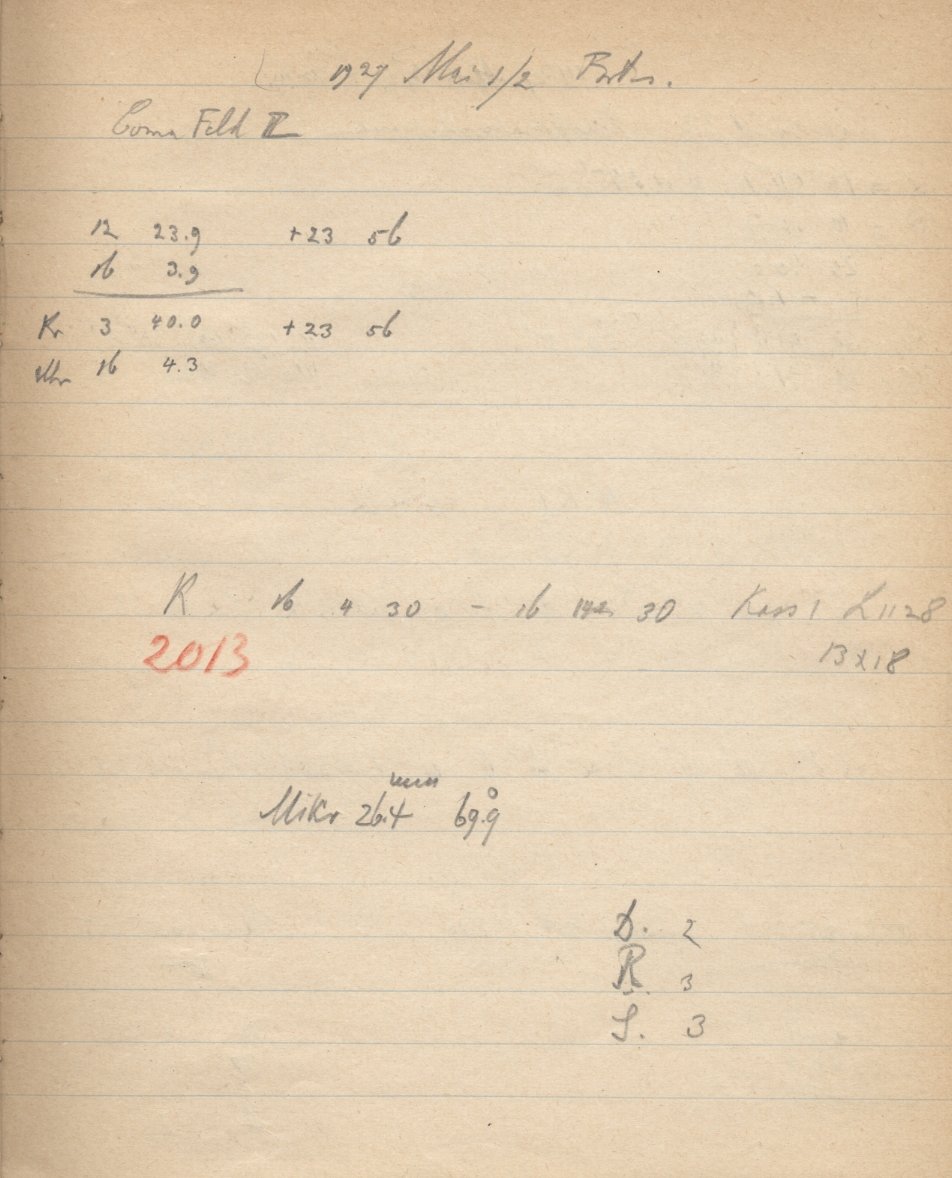 1927 Mai 1/2
Coma Feld II
12 23.9 +23 56
16 3.9
Kr 3 40.0 +23 56
Uhr 16 4.3
R. 16 4 30 - 16 30 Kass 1 L 1128
2013 13x18
mm
Mikr 26.4 69.9°
D. 2
R. 3
S. 3